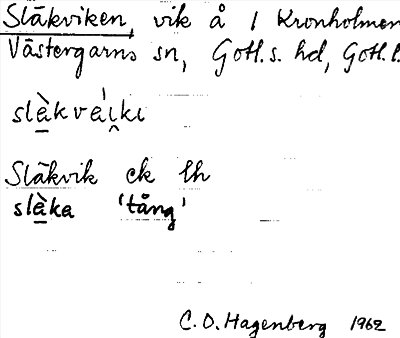 Släkviken, vik å / Kronholmen
Västergarns sn, Gotl. s. hd, Gotl. l.
slà̱kvái̯ki
Släkvik ek lh
slà̱ka 'tång'
C. O. Hagenberg 1962